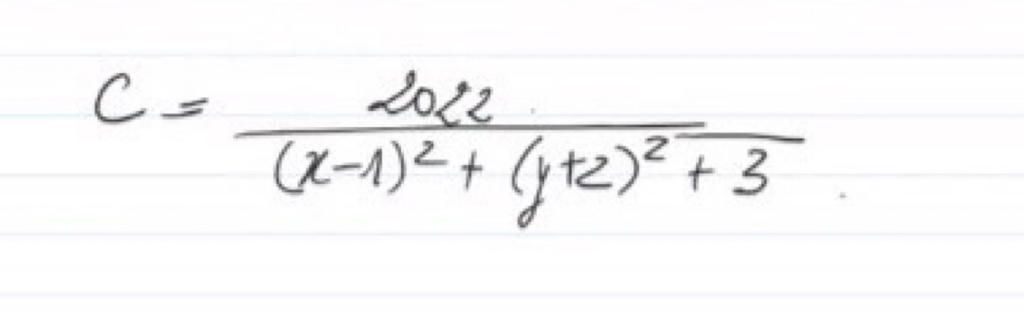 C = 2022 / ((x-1)² + (y+2)² + 3)